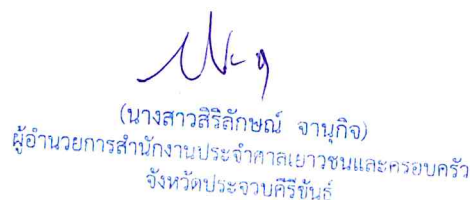 (นางสาวสิริลักษณ์ จานุกิจ)
ผู้อำนวยการสำนักงานประจำศาลเยาวชนและครอบครัว
จังหวัดประจวบคีรีขันธ์